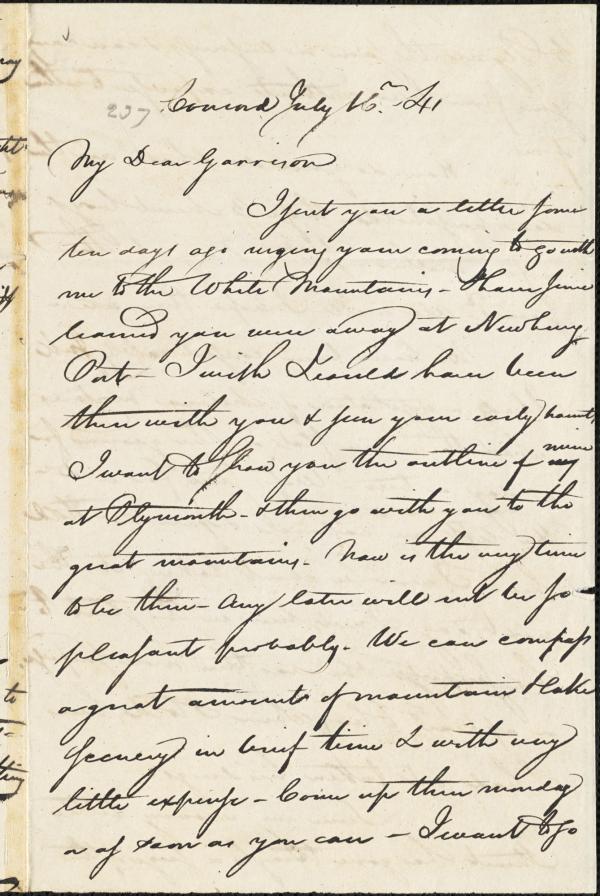 207. Concord July 16. 41
My Dear Garrison
I sent you a letter some
ten days ago urging your coming to go with
me to the White Mountains - I have since
learned you were away at Newbury
Port - I wish I could have been
there with you & seen your early haunts
I want to show you the outline of my mine
at Plymouth - & then go with you to the
great mountains. Now is the very time
to be there - Any later will not be so
pleasant probably. We can compass
a great amount of mountain & lake
scenery in brief time & with very
little expense - Come up then monday
or as soon as you can - I want to go